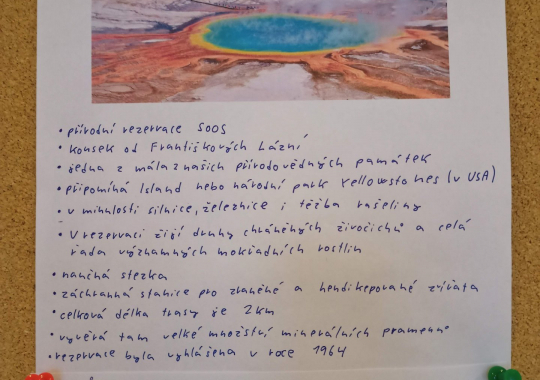 • přírodní rezervace SOOS
• kousek od Františkových Lázní
• jedna z mála z našich přírodovědných památek
• připomíná Island nebo národní park Yellowstones (v USA)
• v minulosti silnice, železnice i těžba rašeliny
• V rezervaci žijí druhy chráněných živočichů a celá
řada významných mokřadních rostlin
• naučná stezka
• záchranná stanice pro zraněné a hendikepované zvířata
• celková délka trasy je 2km
• vyvěrá tam velké množství minerálních pramenů
• rezervace byla vyhlášena v roce 1964